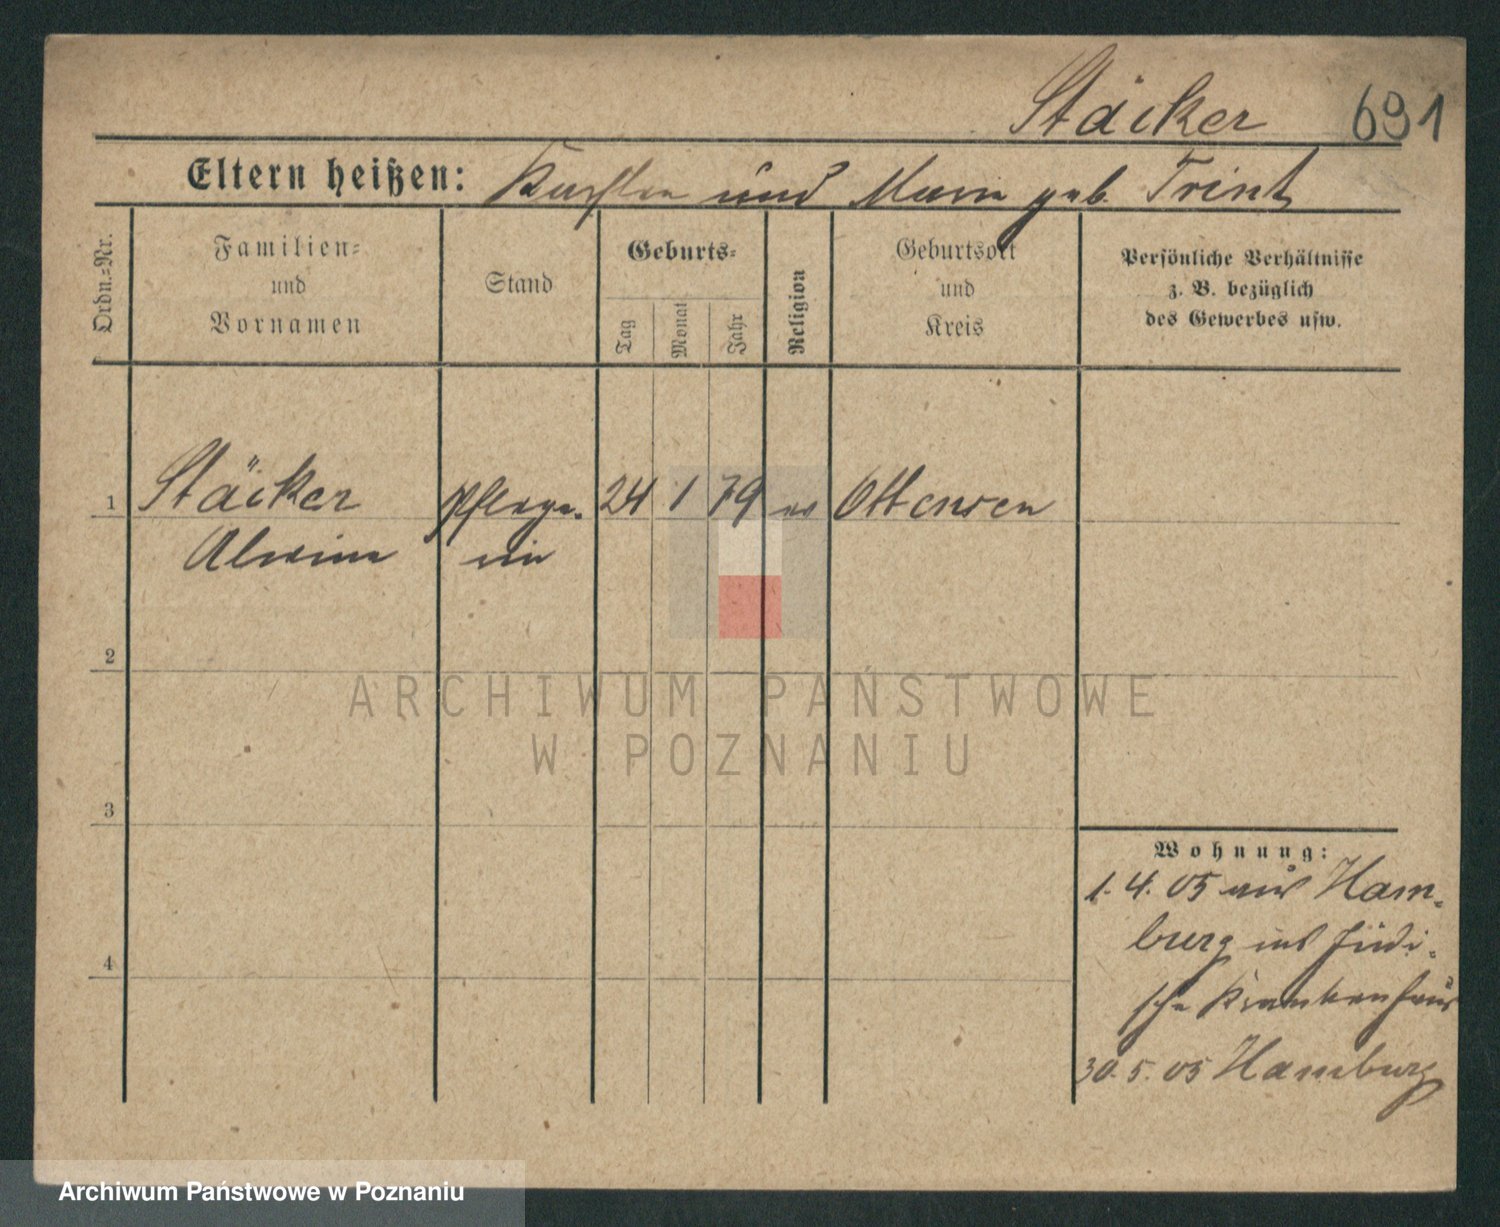 Stäcker 691
Eltern heißen: Karsten und Maria geb. Trint
Ordn.=Nr.
Familien=
und
Vornamen
Stand
Geburts=
Tag
Monat
Jahr
Religion
Geburtsort
und
Kreis
Persönliche Verhältnisse
z. B. bezüglich
des Gewerbes usw.
1 Stäcker Pflege- 24 1 79 ev Ottensen
Alwine rin
2
ARCHIWUM PAŃSTWOWE
W POZNANIU
3
4
Wohnung:
1. 4. 05 aus Ham-
burg ins Jüdi-
sche Krankenhaus
30. 5. 05 Hamburg
Archiwum Państwowe w Poznaniu